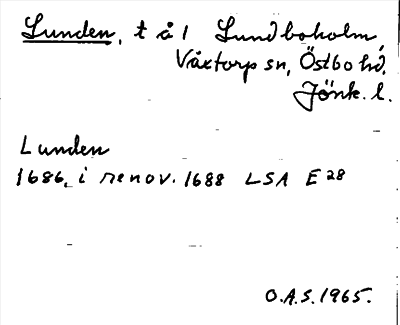 Lunden, t å 1 Lundboholm,
Våxtorp sn, Östbo hd.
Jönk. l.
Lunden
1686, i renov. 1688 LSA E 28
O.A.S. 1965.